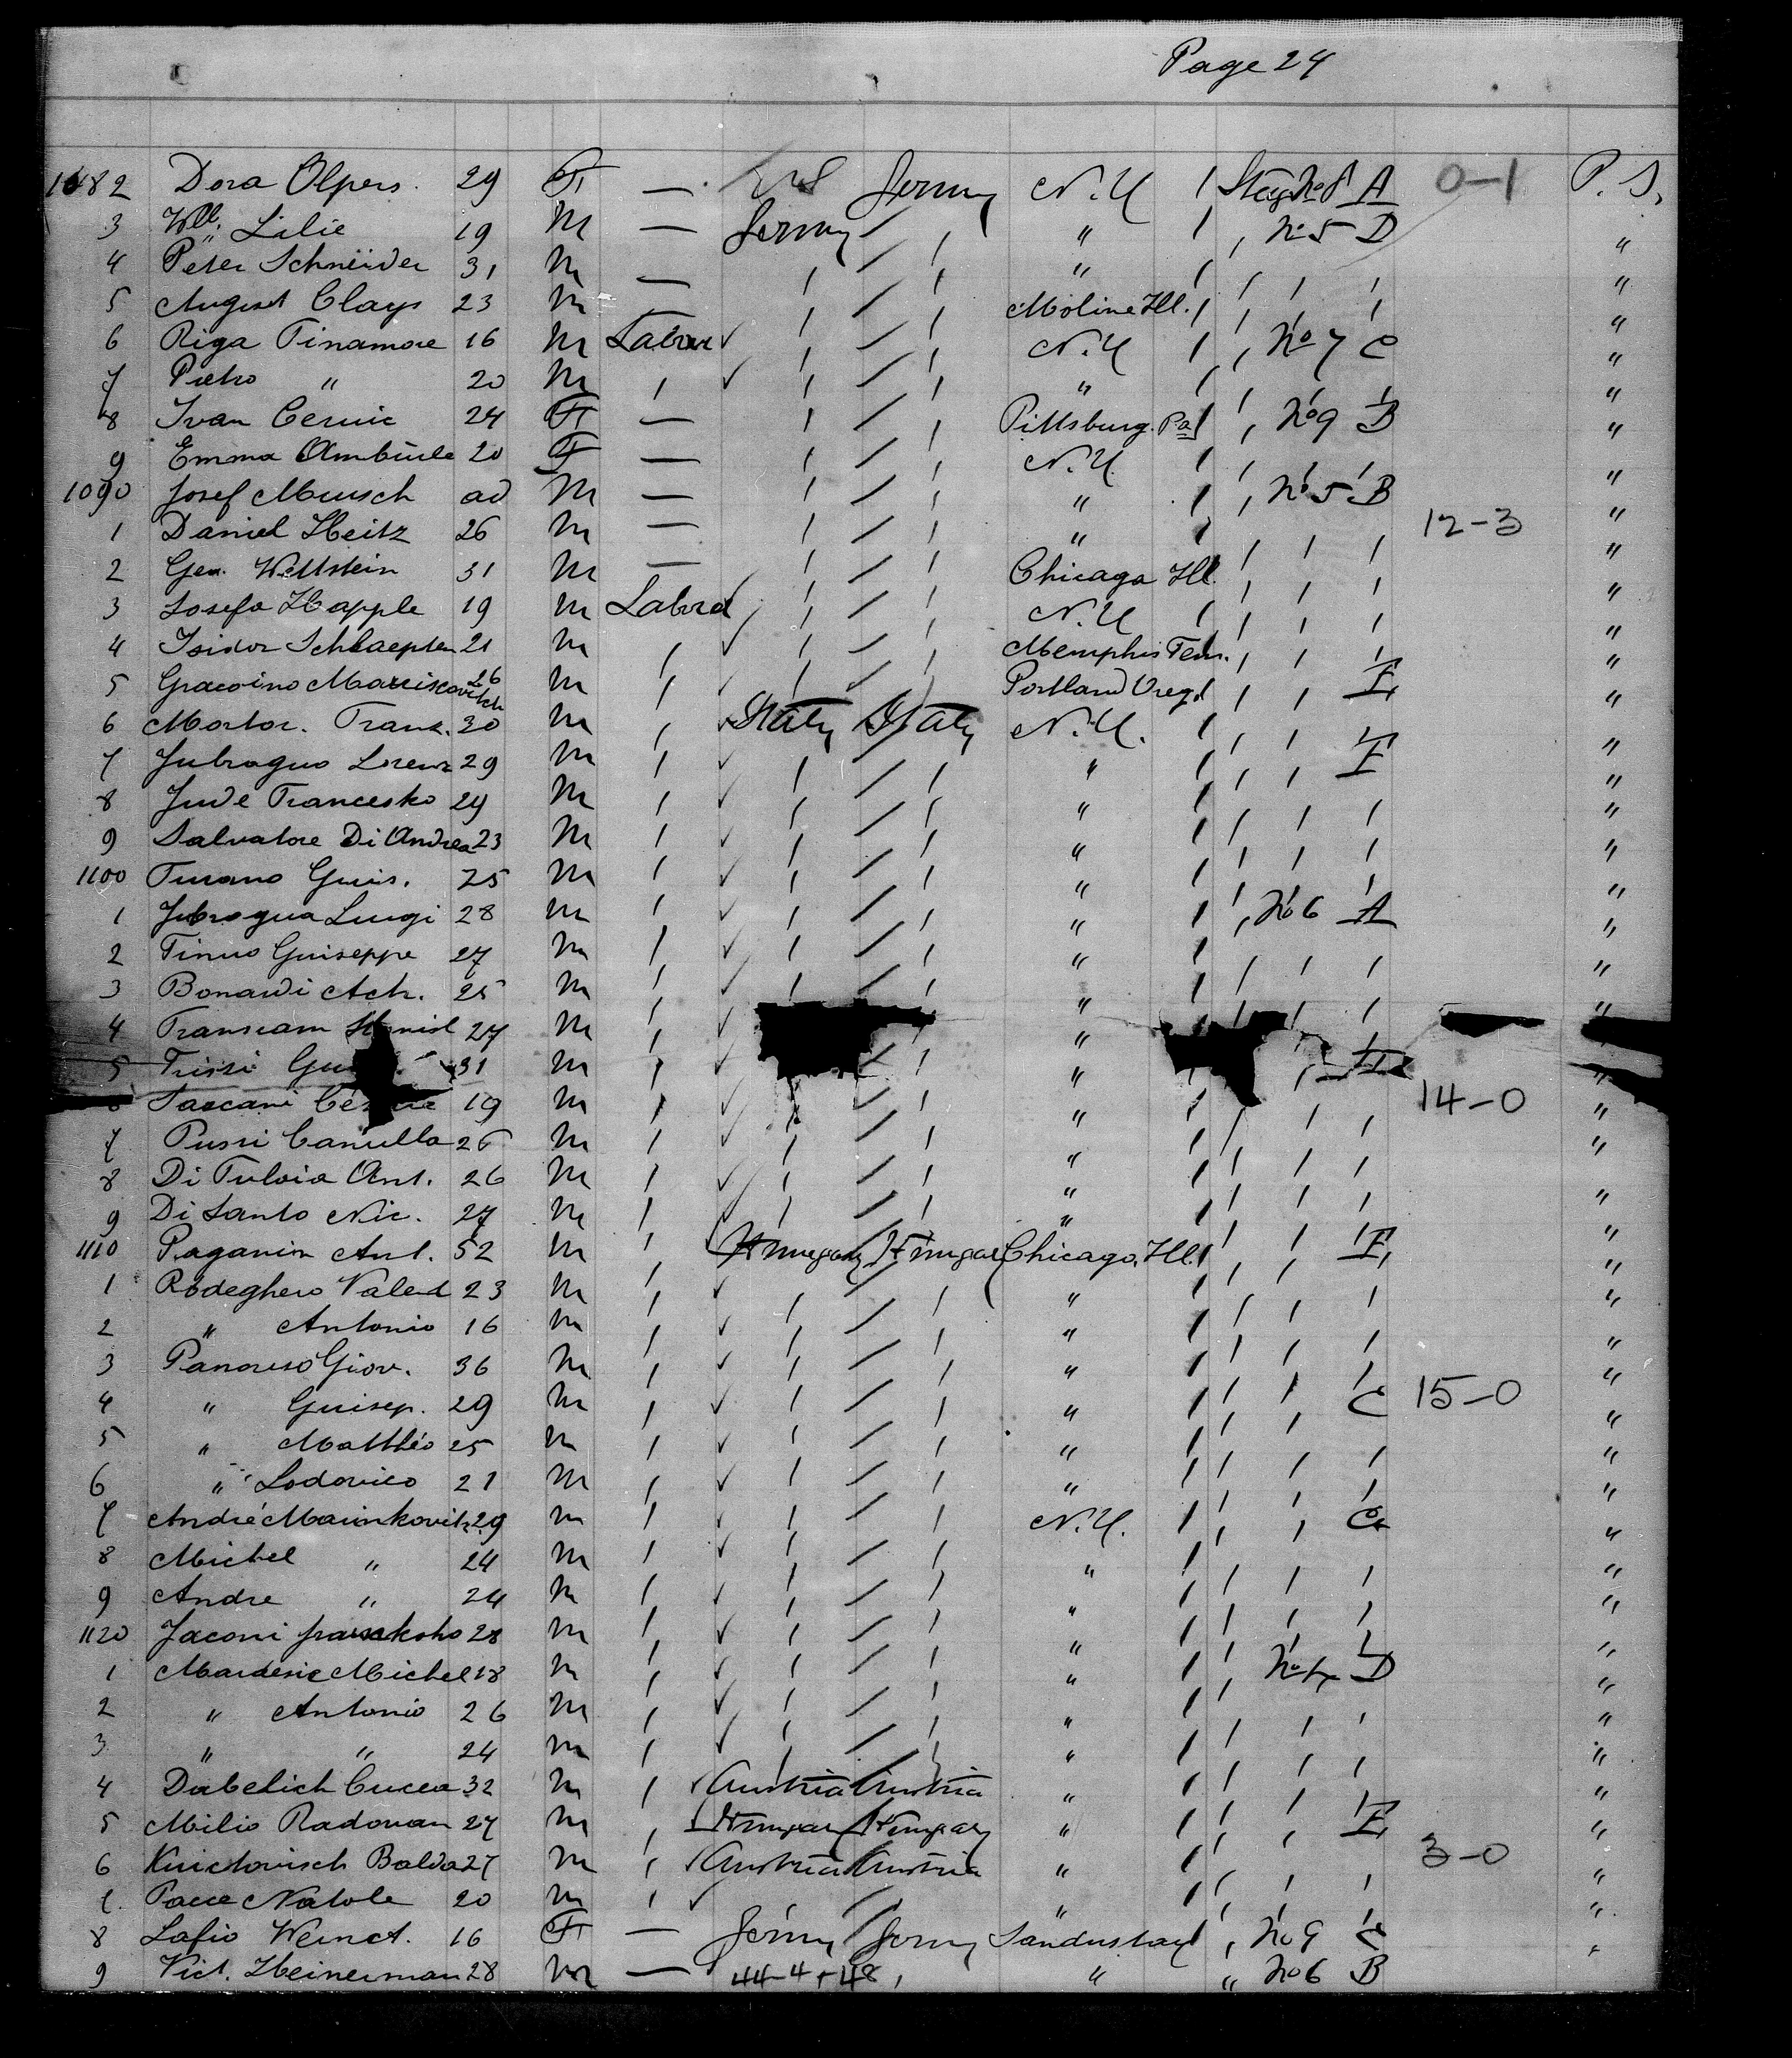 Page 24
1082 Dora Olpers. 29 F — U.S Germy N.Y / Steg No 8 A 0-1 P. S.
3 Wll. Lilie 19 M — Germy / " / , No 5 D "
4 Peter Schneider 31 M — / / / " / / / / "
5 August Clays 23 M — / / / Moline Ill. / / / / "
6 Riga Tinamore 16 M Labour ✓ / / / N.Y / , No 7 C "
7 Pietro " 20 M / ✓ / / / " / / / / "
8 Ivan Cernic 24 F — / / / Pittsburg. Pa / , No 9 B "
9 Emma 20 F — / / / N.Y. / / / / "
1090 Josef Mensch ad M — / / / " / , No 5 B "
1 Daniel Heitz 26 M — / / / " / / / / 12-3 "
2 Geo. Wettstein 31 M — / / / Chicago Ill. / / / "
3 Josefo Happle 19 M Labord ✓ / / / N.Y / / / / "
4 Isidor Schlaepfer 21 M / ✓ / / / Memphis Ten. / / / "
5 Marciscovitch 26 M / ✓ / / / Portland Oreg. / / / E "
6 Mortor. Franz. 30 M / ✓ Italy Italy N.Y. / / / / "
7 Lorenz 29 M / ✓ / / / " / / / E "
8 Francesko 29 M / ✓ / / / " / / / / "
9 Salvatore Di Andrea 23 M / ✓ / / / " / / / / "
1100 Turano Guis. 25 M / ✓ / / / " / / / / "
1 Luigi 28 M / ✓ / / / " / , No 6 A "
2 Tinno Guiseppe 27 M / ✓ / / / " / / / / "
3 Bonardi Ach. 25 M / ✓ / / / " / / / / "
4 27 M / ✓ / " / / "
5 Trissi 31 M / ✓ / / " / / "
6 Toscani 19 M / ✓ / / / " / / / / 14-0 "
7 Pussi Camillo 26 M / ✓ / / / " / / / / "
8 Di Tulvia Ant. 26 M / ✓ / / / " / / / / "
9 Di Santo Nic. 27 M / ✓ / / / " / / / / "
1110 Paganin Ant. 52 M / Hungary Hungar Chicago. Ill. / / / E "
1 Rodeghero Valend 23 M / ✓ / / / " / / / / "
2 " Antonio 16 M / ✓ / / / " / / / / "
3 Panozzo Giov. 36 M / ✓ / / / " / / / / "
4 " Guisep. 29 M / ✓ / / / " / / / C 15-0 "
5 " Matthéo 25 M / ✓ / / / " / / / / "
6 " Lodovico 21 M / ✓ / / / " / / / / "
7 André Marinkovith. 29 M / ✓ / / / N.Y. / / / G "
8 Michel " 24 M / ✓ / / / " / / / / "
9 Andre " 24 M / ✓ / / / " / / / / "
1120 Jaconi 28 M / ✓ / / / " / / / / "
1 Mardesic Michel 18 M / ✓ / / / " / , No 4 D "
2 " Antonio 26 M / ✓ / / / " / / / / "
3 " " 24 M / ✓ / / / " / / / / "
4 Dabelich 32 M / ✓ Austria Austria " / / / / "
5 Milio Radovan 27 M / Hungary Hungary " / / / E "
6 Balda 27 M / ✓ Austria Austria " / / / / 3-0 "
7. Pace Natole 20 M / ✓ / " / / / / "
8 Lafio Wernct. 16 F — Germy Germy / , No 9 C "
9 Vict. Heinerman 28 M — 44-4+48 , " " No 6 B